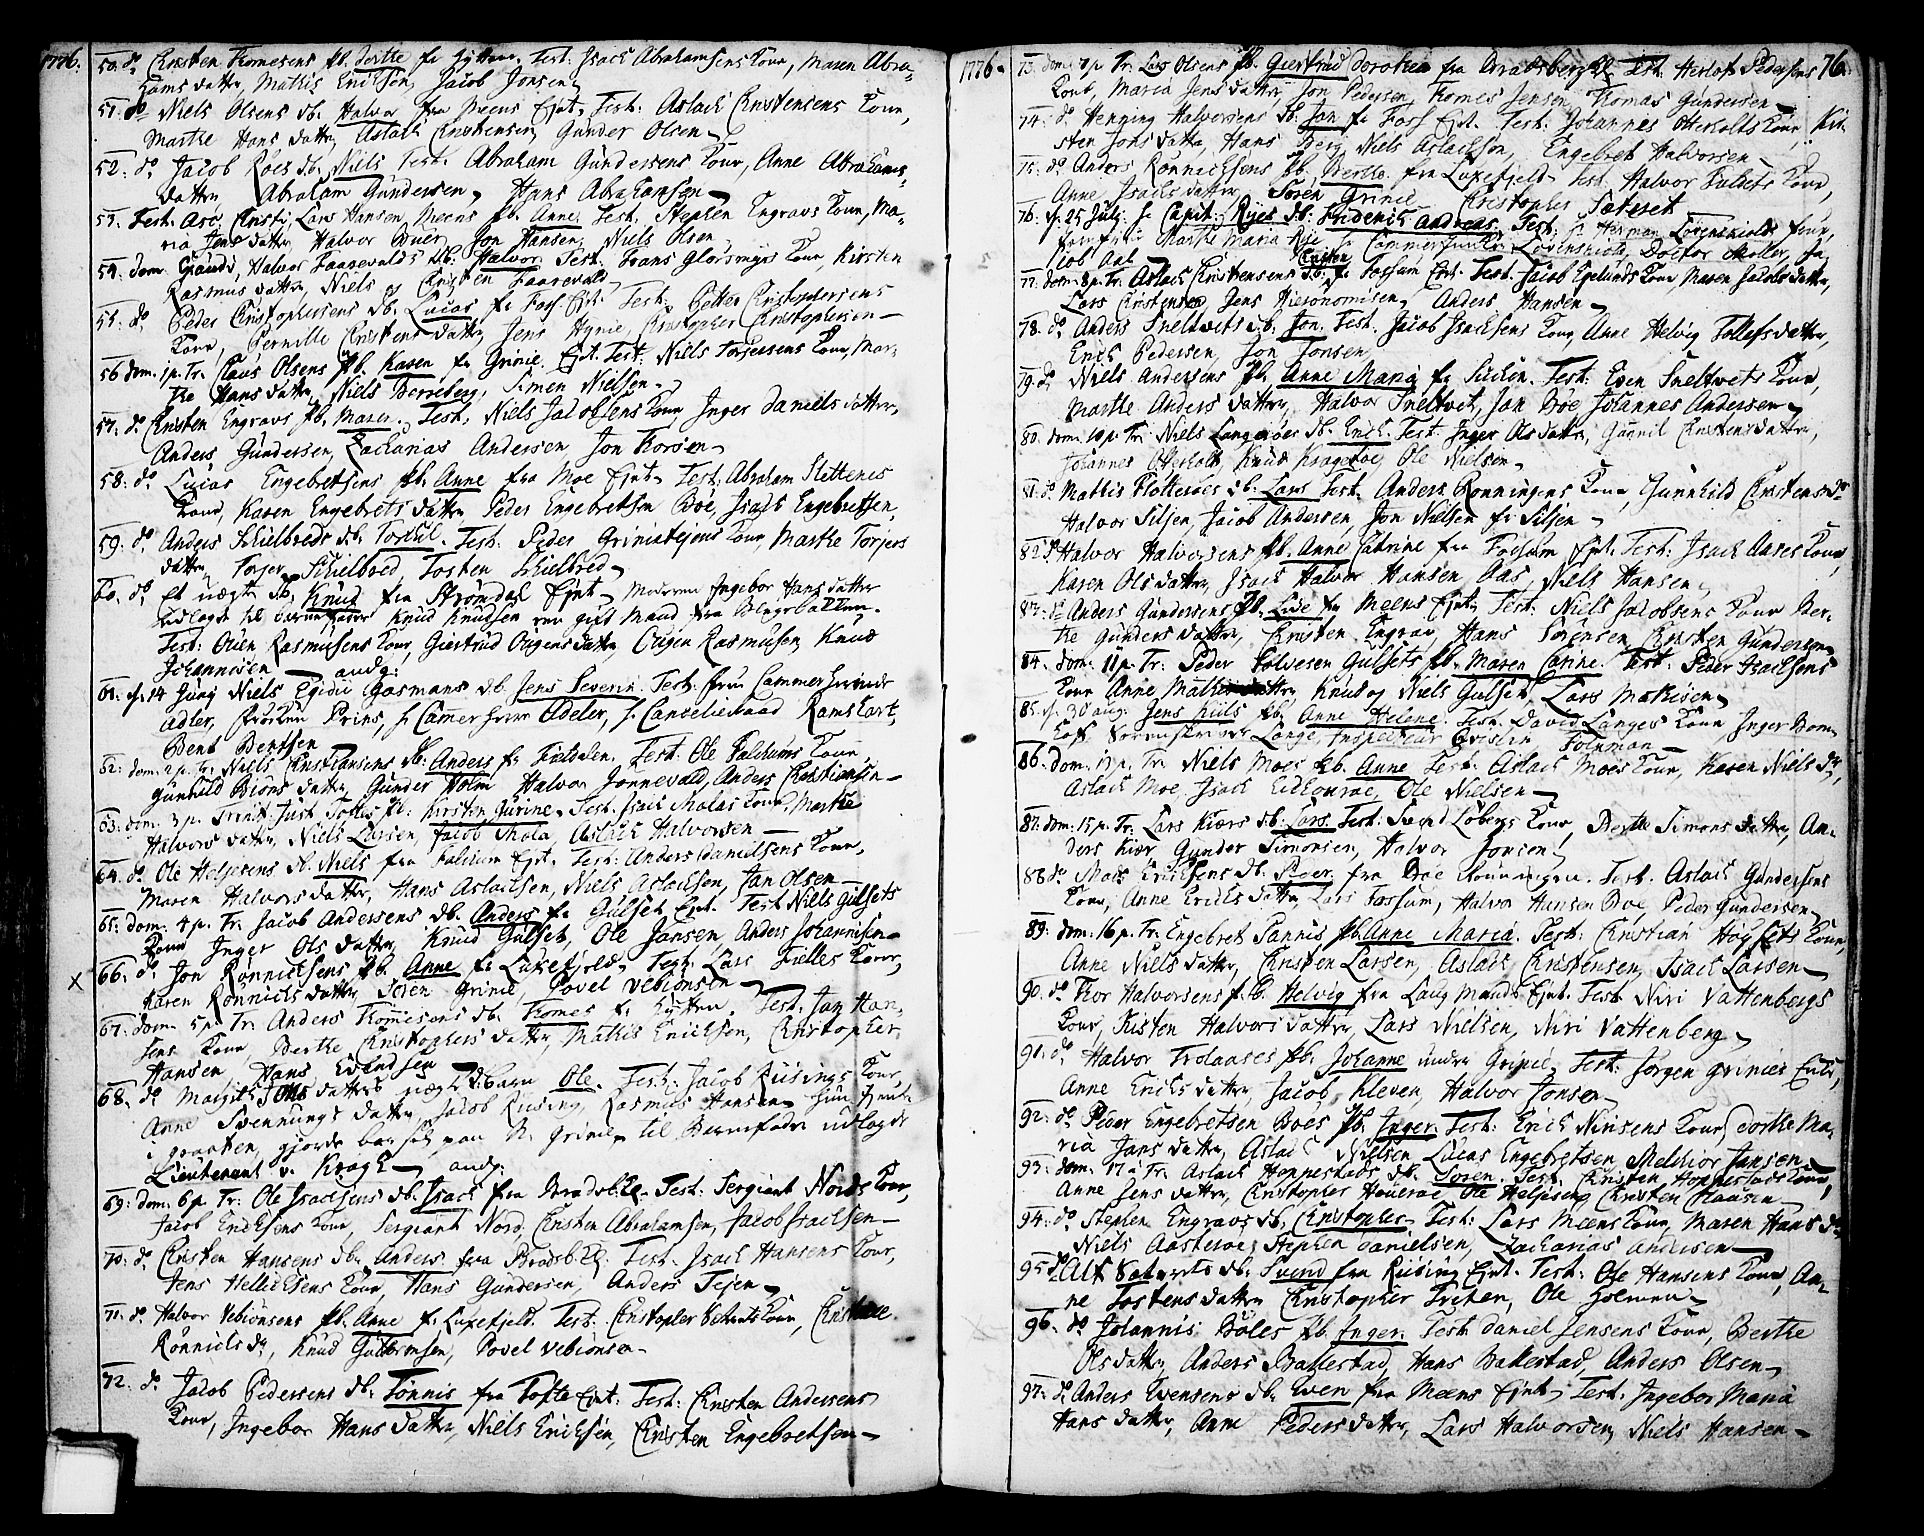 1776.
50. d: Christen Thomesens pb. Dorthe fr Hytten. Test: Isach Abrahamsens Kone, Maren Abra-
hams datter, Mathis Erichsen, Jacob Jonsen
51. d: Niels Olsens db. Halvor fra Meens Ejnt. Test: Aslach Christensens Kone,
Marthe Hans datter, Aslach Christensen, Gunder Olsen
52. do Jacob Roes db. Niels Test. Abraham Gundersens Kone, Anne Abrahams-
datter Abraham Gundersen, Hans Abrahamsen
53. Fest. Asc. Christi, Lars Hansen, Meens pb. Anne. Test. Stephen Engravs Kone, Ma-
ria Jens datter, Halvor Buer, Jon Hansen, Niels Olsen
54. dom. Exaudi, Halvor Faarevalds db. Halvor Test. Frans Glarmesters Kone, Kirsten
Rasmus datter, Niels og Christen Faarevald
55. do Peder Christophersens db. Lucas fr Foss Ejnt. Test: Petter Christophersens
Kone, Pernille Christens datter, Jens Hynie, Christopher Christophersen
56 dom. 1 p. Tr. Claus Olsens pb. Karen fr Grinie Ejnt. Test. Niels Torgersens Kone, Mar-
the Hans datter, Niels Berreberg, Simen Nielsen
57. do Christen Engravs pb. Maren. Test. Niels Jacobsens Kone, Inger Daniels datter,
Anders Gundersen, Zacharias Andersen, Jon Thorsen
58. do Lucas Engebretsens pb. Anne fra Moe Ejnt. Test: Abraham Slettenes
Kone, Karen Engebrets datter Peder Engebretsen Böe, Isach Engebretsen,
59. do Anders Skielbreds db. Torkil. Test: Peder Griniestejens Kone, Marthe Torjers
datter, Torjer Skielbred Tosten Skielbred
60. do Et uægte db. Knud fra Strömdal Ejnt. Moderen Ingebor Hans datter
udlagde til Barnefader Knud Knudsen en gift Mand fra
Test: Ouen Rasmusens Kone, Giertrud Ougens datter, Ougen Rasmusen, Knud
Johannesen andg:
61. d. 14 Junij Niels Egidii Gasmans db. Jens Severin. Test: fru Cammerherinde
Adler, frøcken Prins, h. Cammerherre Adeler, h. Cancelieraad Ramshart,
Bent Bentsen
62. dom. 2 p. Tr. Niels Christiansens db. Anders fr Fieldalen. Test. Ole Falchums Kone
Gunhild Biöns datter, Gunder Holm Halvor Jonnevald, Anders Christiansen
63. dom. 3 p. Trinit: Just Tolles pb. Kirsten Gurine. Test. Isach Molas Kone, Marthe
Halvors datter, Niels Larsen, Jacob Mola Aslach Halvorsen
64. do Ole Helgesens db. Niels fra Falchum Ejnt. Test: Anders Danielsens Kone,
Maren Halvors datter, Hans Aslachsen, Niels Aslachsen, Jan Olsen
65. dom. 4 p. Tr. Jacob Andersens db. Anders fr Gulset Ejnt. Test Niels Gulsets
Kone Inger Ols datter, Knud Gulset, Ole Jansen, Anders Johannesen
X 66. do Jon Rönnichsens pb. Anne fr Luxefjeld. Test. Lars Fielles Kone,
Karen Rönnichs datter, Sören Grinie Povel Vebiönsen
67. dom. 5 p. Tr. Anders Thomesens db. Thomes fr. Hytten. Test. Jan Han-
sens Kone, Berthe Christophers datter, Mathis Erichsen, Christopher
Hansen, Hans Evendsen
68. do Margith Ols datters uægte barn Ole. Test. Jacob Riisings Kone,
Anne Svennungs datter, Jacob Riising, Rasmus Hansen
Grinie, til Barnefader udlagde
Lieutenant v. Kragh andg:
69. dom. 6 p. Tr: Ole Isachsens db. Isach fra Bradsb. Kl. Test: Sergiant Nords Kone,
Jacob Erichsens Kone, Sergiant Nord, Christen Abrahamsen, Jacob Isachsen
70. do Christen Hansens db. Anders fra Bradsb. Kl. Test. Isach Hansens Kone,
Jens Hellichsens Kone, Hans Gundersen, Anders Tejen
71. do Halvor Vebiönsens pb. Anne fr Luxefjeld. Test. Christopher Kone, Christine
Rönnichs dr, Knud Guttormsen, Povel Vebionsen
72. do Jacob Pedersens db. Tönnis fra Tofte Ejnt: Test: Christen Andersens
Kone, Ingebor Hans datter, Niels Erichsen, Christen Engebretsen
1776. 76.
73. dom. 7 p. Tr. Lars Olsens pb. Giertrud Dorothea fra Bradsberg Kl. Test: Herlof Pedersens
Kone, Maria Jens datter, Jon Pedersen Thomes Jensen, Thomas Gundersen
74. do Henning Halvorsens db. Jan fr Foss Ejnt. Test. Johannes Otterholts Kone, Kir-
sten Jons datter, Hans Berg, Niels Aslachsen, Engebret Halvorsen
75. do Anders Rönnichsens pb. Berthe fra Luxefjeld Test. Halvor Kone,
Anne Isachs datter, Sören Grinie Christopher Sæteret
76. d. 25 Julij h. Capit. Ryes db. Friderich Andreas. Test. h. Herman Lövenskiolds frue,
jomfrue Marthe Maria Rye, h. Cammerjunker Lövenskiold, Doctor Möller, Ja-
cob Aal
77. dom. 8 p. Tr. Aslach Christensens db. Christen fr Fossum Ejnt. Test. Jacob Eplunds Kone Maren Jacobs datter,
Lars Christensen, Jens Hieronimisen, Anders Hansen
78. do Anders Sneltvets db. Jon. Test. Jacob Isachsens Kone, Anne Helvig Tollefs datter,
Erich Pedersen, Jon Jonsen
79. do Niels Andersens pb. Anne Maria fr Test: Even Sneltvets Kone,
Marthe Anders datter, Halvor Sneltvet, Jan Böe Johannes Andersen
80. dom. 10 p. Tr. Niels Langerøes db. Erich Test. Inger Ols datter, Gunnil Christens datter,
Johannes Otterholt, Knud Kragerøe, Ole Nielsen
81. do Mattis Flotterøes db. Lars Test. Anders Rönningens Kone, Gunnhild Christens dr
Halvor Siljen, Jacob Andersen, Jon Nielsen fr Siljen
82. do Halvor Halvorsens pb. Anne Cathrine fra Fossum Ejnt. Test: Isach Aases Kone,
Karen Ols datter, Isach Halvor Hansen, Aas, Niels Hansen
83. do Anders Gundersens pb. Live fr Meens Ejnt. Test: Niels Jacobsens Kone Ber-
the Gunders datter, Christen Engrav, Hans Sörensen, Christen Gundersen
84. dom. 11 p. Tr: Peder Gulsets pb. Maren Carine. Test. Peder Isachsens
Kone Anne Mathis datter Knud og Niels Gulset, Lars Mathisen
85. d. 30 aug. Jens Kiils pb. Anne Helene. Test. David Langes Kone Inger Bom-
hoff Sorenskriver Lange, Inspecteur Folkman
86. dom. 13 p. Tr. Niels Moes pb. Anne Test: Aslach Moes Kone, Karen Niels dr,
Aslach Moe, Isach Eidkouroe, Ole Nielsen
87. dom. 15 p. Tr. Lars Kiærs db. Lars. Test. Svend Löbergs Kone, Berthe Simons datter, An-
ders Kiær Gunder Simonsen, Halvor Jonsen
88 do Mads Erichsens db. Peder fra Böe Test. Aslach Gundersens
Kone, Anne Erichs datter, Lars Fossum, Halvor Hansen Boe, Peder Gundersen
89: dom. 16 p. Tr. Engebret Tannis pb. Anne Maria. Test: Christian Höysets Kone,
Anne Niels datter, Christen Larsen, Aslach Christensen, Isach Larsen
90. do Thor Halvorsens pb. Helvig fra Laugmands Ejnt. Test Niri Vattenbergs
Kone, Kisten Halvors datter, Lars Nielsen, Niri Vattenberg
91. do Halvor Trolaases pb. Johanne under Gripe. Test: Jørgen Grinies Enke,
Anne Erichs datter, Jacob Kleven, Halvor Jonsen
92. do Peder Engebretsen Böes pb. Inger. Test: Erich Nirisens Kone, Dorthe Ma-
ria Jans datter, Aslach Nielsen Lucas Engebretsen, Melchior Jansen
93. dom. 17 p. Tr. Aslach Hoppestads db. Sören. Test. Christen Hoppestads Kone,
Anne Jens datter, Christopher Houeroe, Ole Helgesen, Christen Clausen
94. do Stephen Engravs db. Christopher. Test: Lars Meens Kone, Maren Hans dr
Niels Aasteroe, Stephen Danielsen, Zacharias Andersen
95. do Alf db. Svend fra Riising Ejnt. Test: Ole Hansens Kone, An-
ne Tostens datter Christopher Ole Holmen
96. do Johannis Böles pb. Inger. Test: Daniel Jensens Kone, Berthe
Ols datter, Anders Ballestad, Hans Ballestad, Anders Olsen
97. do Anders Evensens db. Even fra Meens Ejnt. Test. Ingebor Maria
Hans datter, Anne Peders datter, Lars Halvorsen, Niels Hansen